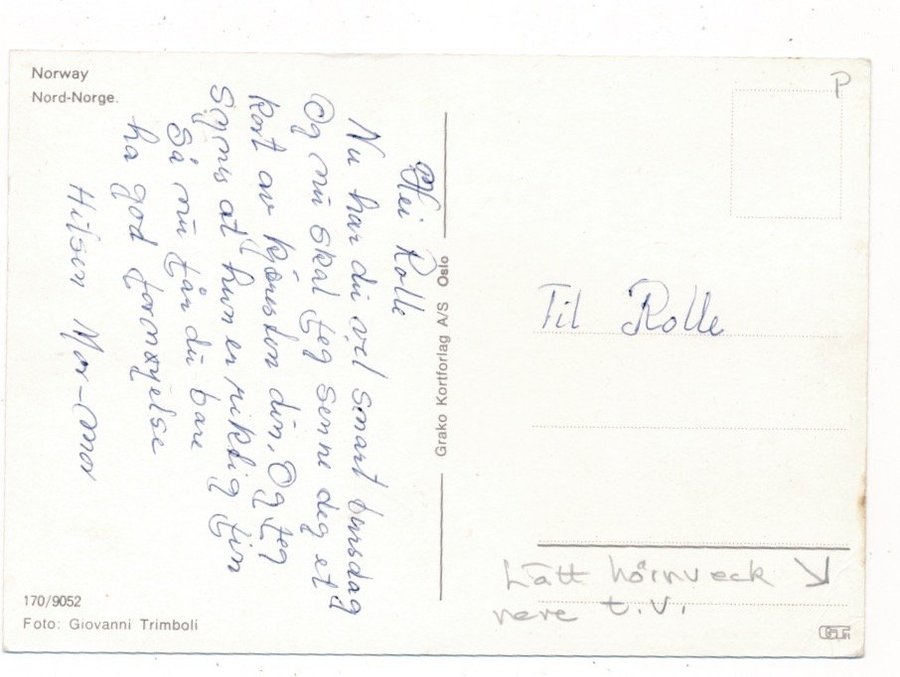 Norway
Nord-Norge.
Hei Rolle
Nu har du vel snart bursdag
Og nu skal jeg senne deg et
kort av kjæresten din. Og jeg
synes at hun er riktig fin
Så nu får du bare
ha god fornøyelse
Hilsen Mor-mor
170/9052
Foto: Giovanni Trimboli
Grako Kortforlag A/S Oslo
P
Til Rolle
Lätt hörnveck
nere t.v.